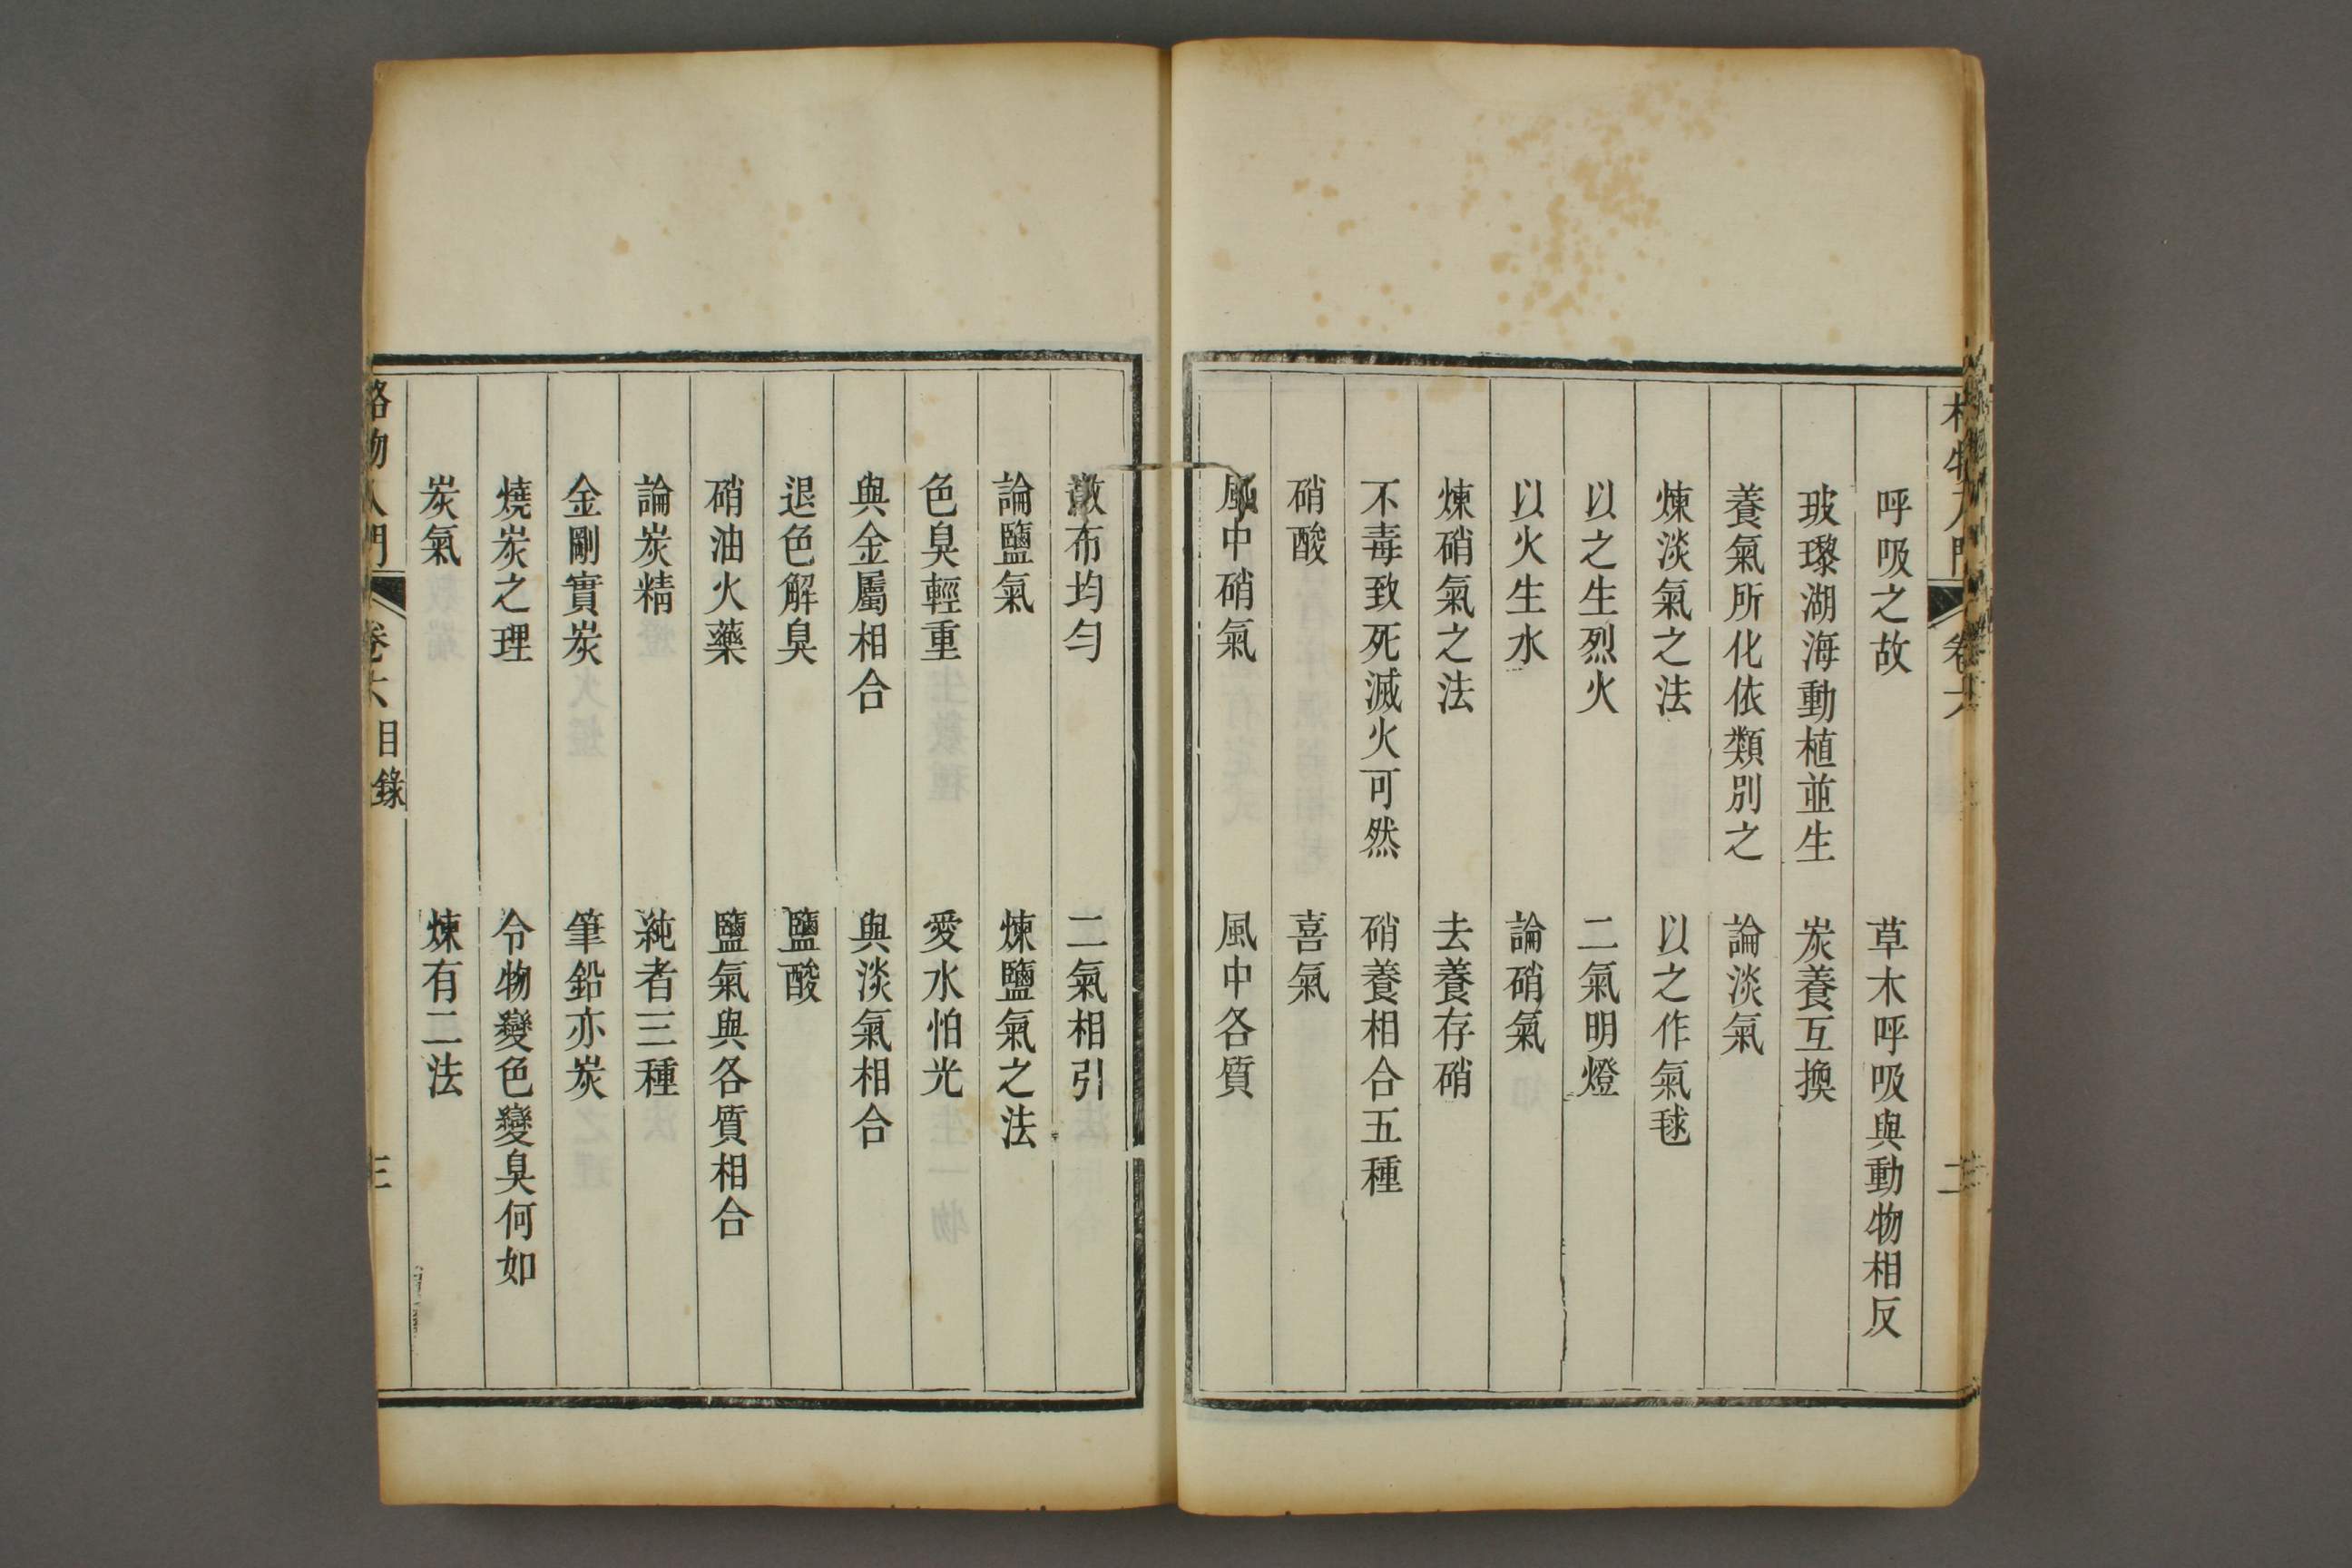 格物入門 卷六 二
呼吸之故 草木呼吸與動物相反
玻瓈湖海動植並生 炭養互換
養氣所化依類別之 論淡氣
煉淡氣之法 以之作氣毬
以之生烈火 二氣明燈
以火生水 論硝氣
煉硝氣之法 去養存硝
不毒致死滅火可然 硝養相合五種
硝酸 喜氣
風中硝氣 風中各質
散布均勻 二氣相引
論鹽氣 煉鹽氣之法
色臭輕重 愛水怕光
與金屬相合 與淡氣相合
退色解臭 鹽酸
硝油火藥 鹽氣與各質相合
論炭精 純者三種
金剛實炭 筆鉛亦炭
燒炭之理 令物變色變臭何如
炭氣 煉有二法
格物入門 卷六 目錄 三